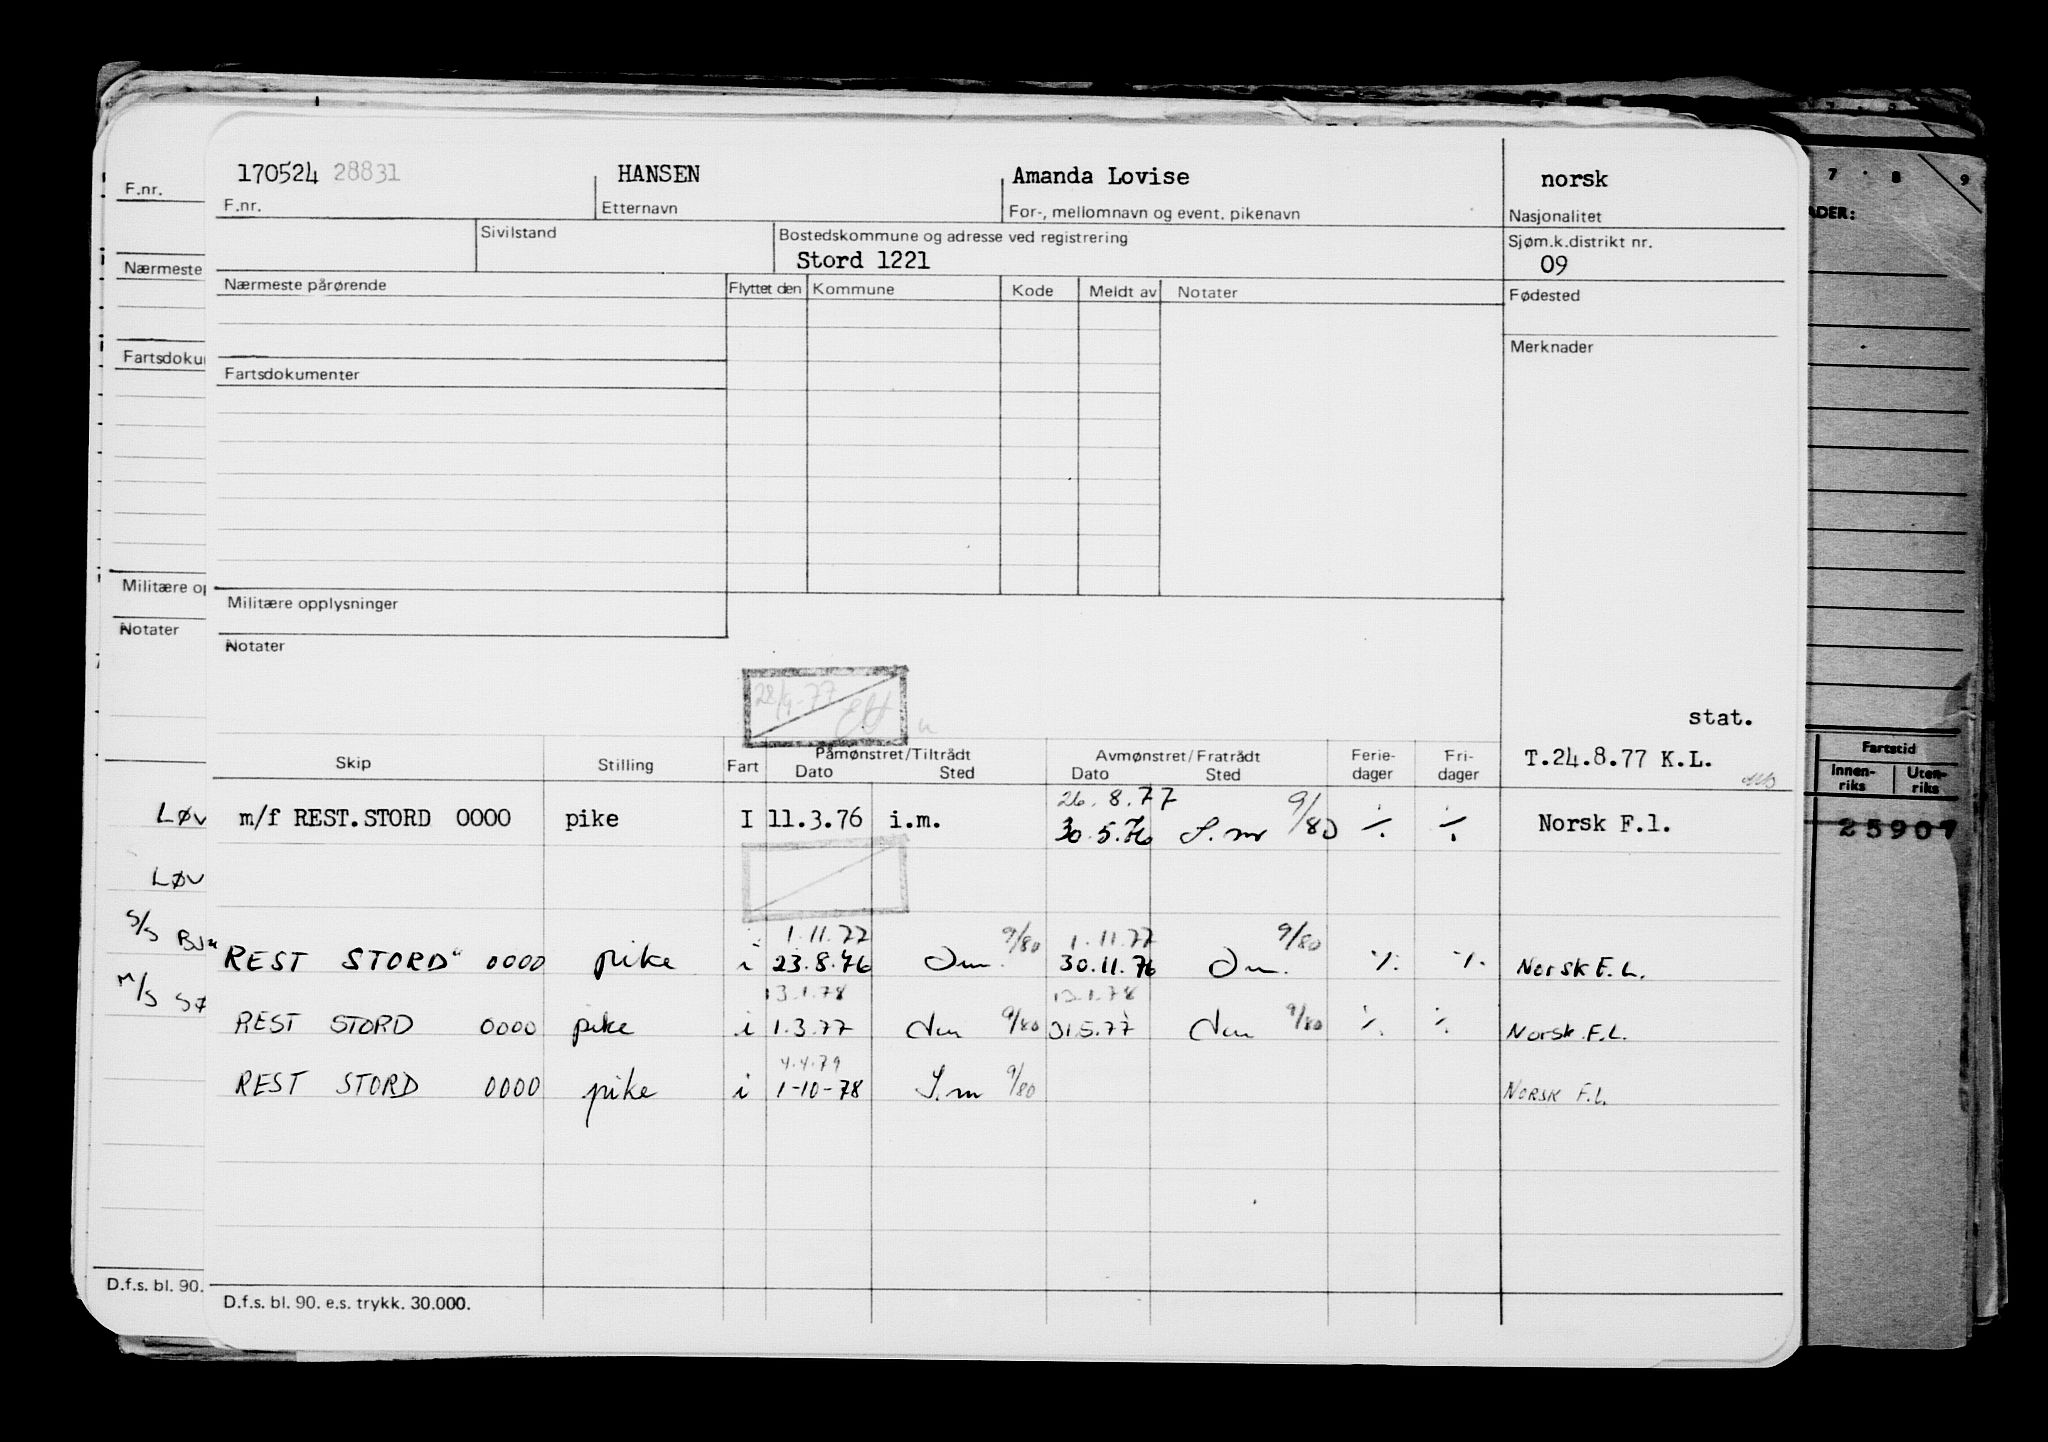 170524 28831 HANSEN Amanda Lovise norsk
F.nr. Etternavn For-, mellomnavn og event. pikenavn Nasjonalitet
Sivilstand Bostedskommune og adresse ved registrering Sjøm.k.distrikt nr.
Stord 1221 09
Nærmeste pårørende Flyttet den Kommune Kode Meldt av Notater Fødested
Merknader
Fartsdokumenter
Militære opplysninger
Notater
28/9-77
stat.
Skip Stilling Fart Påmønstret/Tiltrådt Avmønstret/Fratrådt Ferie- Fri-
Dato Sted Dato Sted dager dager
T.24.8.77 K.L.
26.8.77 9/80
m/f REST.STORD 0000 pike I 11.3.76 i.m. 30.5.76 S.m ./. ./. Norsk F.l.
1.11.77 9/80 1.11.77 9/80
REST STORD" 0000 pike i 23.8.76 30.11.76 ./. ./. Norsk F.L.
13.1.78 13.1.78
REST STORD 0000 pike i 1.3.77 9/80 31.5.77 9/80 ./. ./. Norsk F.L.
4.4.79
REST STORD 0000 pike i 1-10-78 S.m 9/80 NORSK F.L.
D.f.s. bl. 90. e.s. trykk. 30.000.
F.nr.
Nærmeste
Fartsdoku
Militære op
Notater
LØV
LØV
S/S
M/S SØ
D.f.s. bl. 90.
7 8 9
ADER:
Fartstid
Innen- Uten-
riks riks
25907